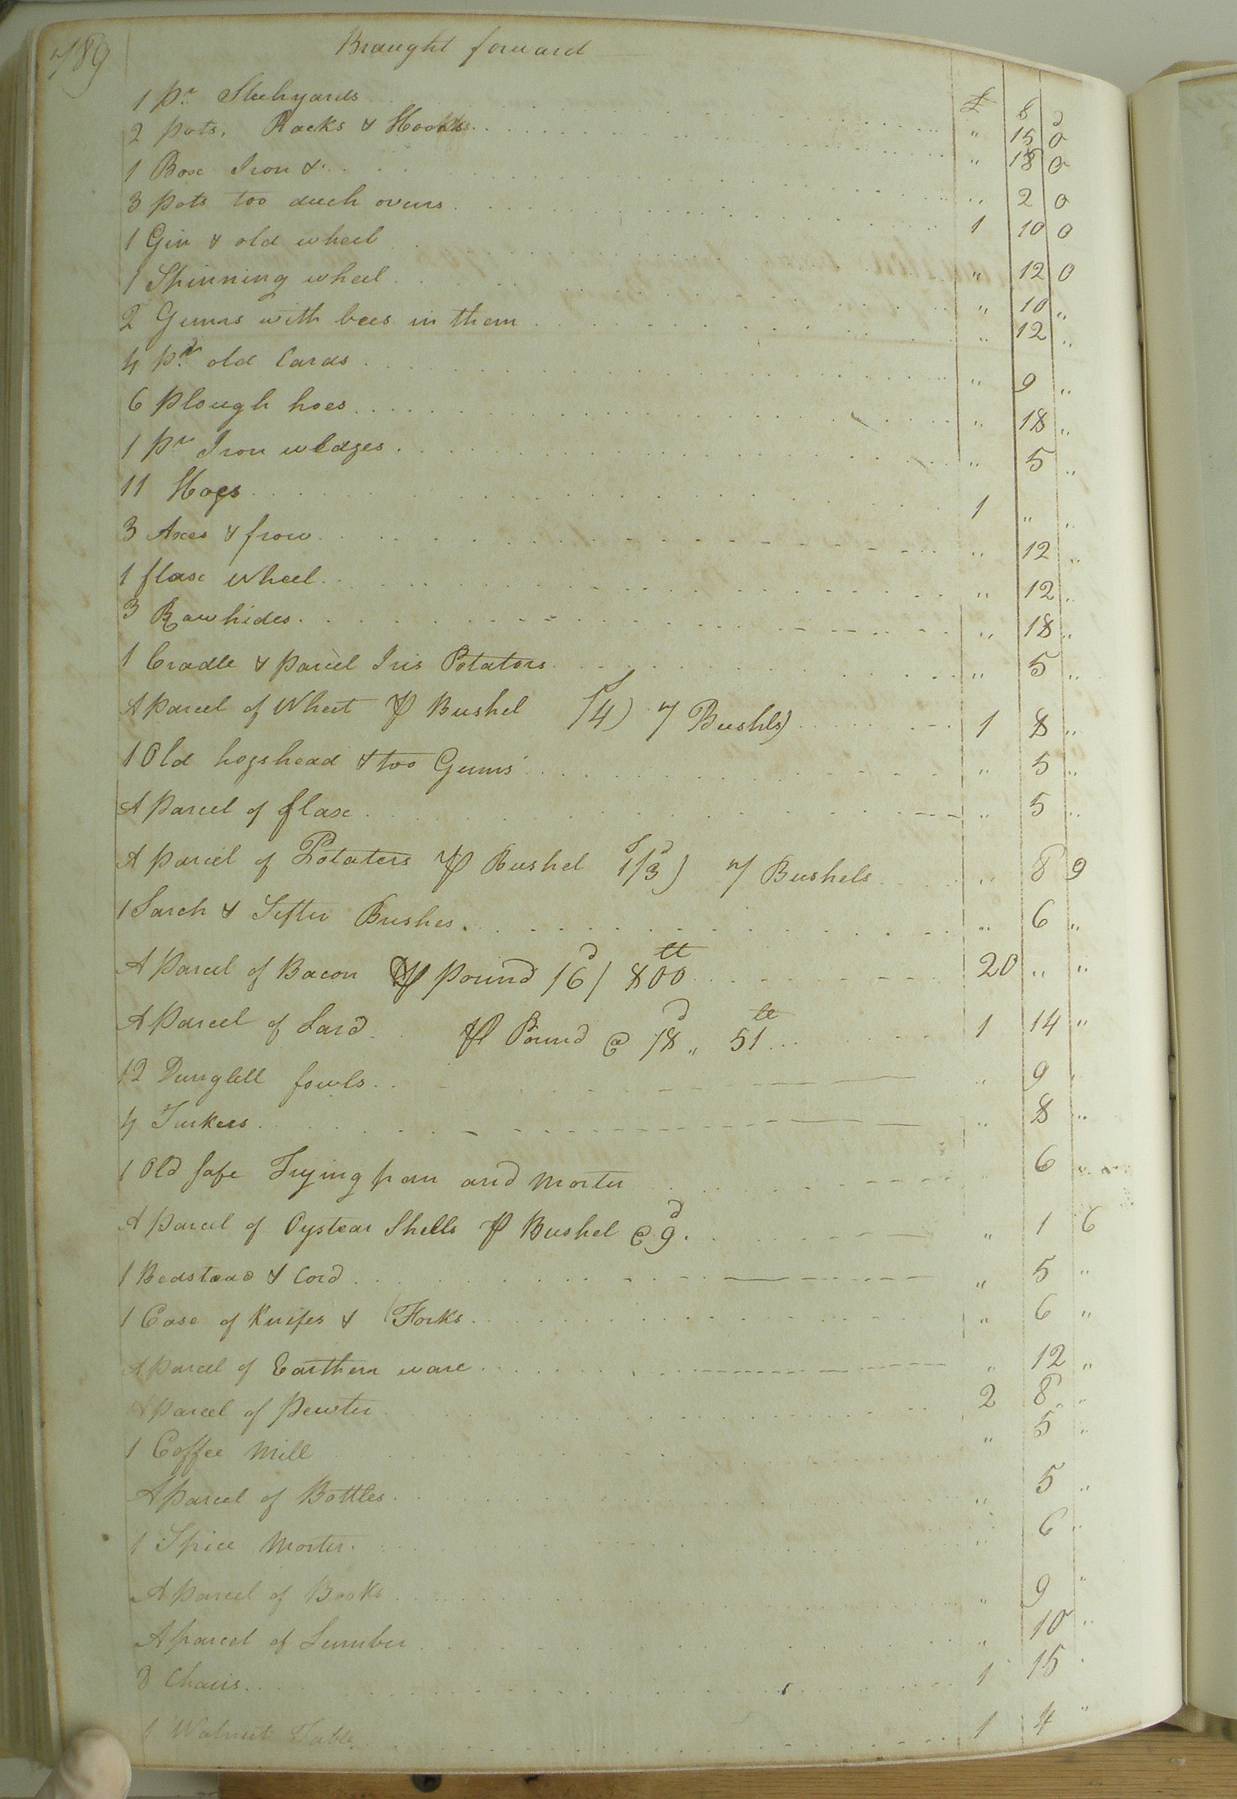 789
Braught forward
£ S d
1 pr. Stehyards " 15 0
2 pots, Racks & Hooks " 18 0
1 Box Iron & " 2 0
3 pots too duch ovens 1 10 0
1 Gin & old wheel " 12 0
1 Spinning wheel " 10 "
2 Gums with bees in them " 12 "
4 pr old Cards " 9 "
6 Plough hoes " 18 "
1 pr Iron wedges " 5 "
11 Hogs 1 " "
3 Axes & frow " 12 "
1 flax wheel " 12 "
3 Rawhides " 18 "
1 Cradle & parcel Iris Potaters " 5 "
A Parcel of Wheet ⅌ Bushel /4) 7 Bushls) 1 8 "
1 Old hogshead & too Gums " 5 "
A Parcel of flax " 5 "
A parcel of Potaters ⅌ Bushel 1/3) 7 Bushels " 8 9
1 Sarch & Sifter Brushes " 6 "
A Parcel of Bacon ⅌ pound /6/ 800 tt 20 " "
A Parcel of Lard ⅌ Pound @ /8 " 51 tt 1 14 "
12 Dunglell fowls " 9 "
4 Turkees " 8 "
1 Old safe Frying pan and morter 6 "
A Parcel of Oystear Shells ⅌ Bushel @ 9d " 1 6
1 Bedstead & Cord " 5 "
1 Case of Knifes & Forks " 6 "
A parcel of Earthern ware " 12 "
A parcel of pewter 2 8 "
1 Coffee Mill " 5 "
A Parcel of Bottles " 5 "
1 Spice Morter " 6 "
A Parcel of Books " 9 "
A parcel of Lumber " 10 "
Chairs 1 15 "
1 Walnut Table 1 4 "